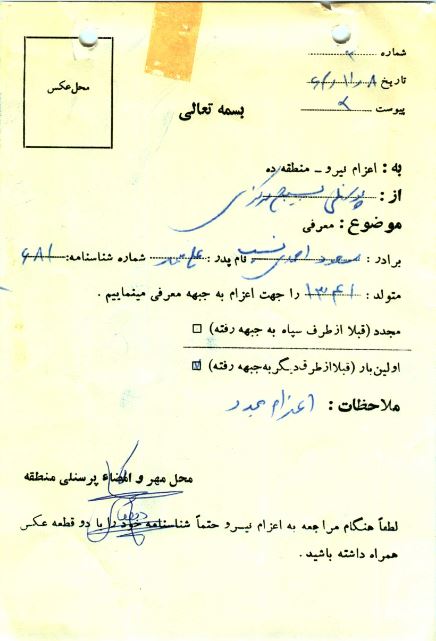 شماره ۲
تاریخ ۶۲/۱۱/۸
پیوست ۲
محل عکس
بسمه تعالی
به : اعزام نیرو - منطقه ده
از : پرسنلی بسیج مرکزی
موضوع : معرفی
برادر : مسعود احمدی نسب نام پدر : شماره شناسنامه : ۶۸۱
متولد : ۱۳۴۱ را جهت اعزام به جبهه معرفی مینماییم .
مجدد (قبلا از طرف سپاه به جبهه رفته) □
اولین بار (قبلا از طرف دیگر به جبهه رفته) ☑
ملاحظات : اعزام مجدد
محل مهر و امضاء پرسنلی منطقه
لطفاً هنگام مراجعه به اعزام نیرو حتماً شناسنامه خود را با دو قطعه عکس
همراه داشته باشید .